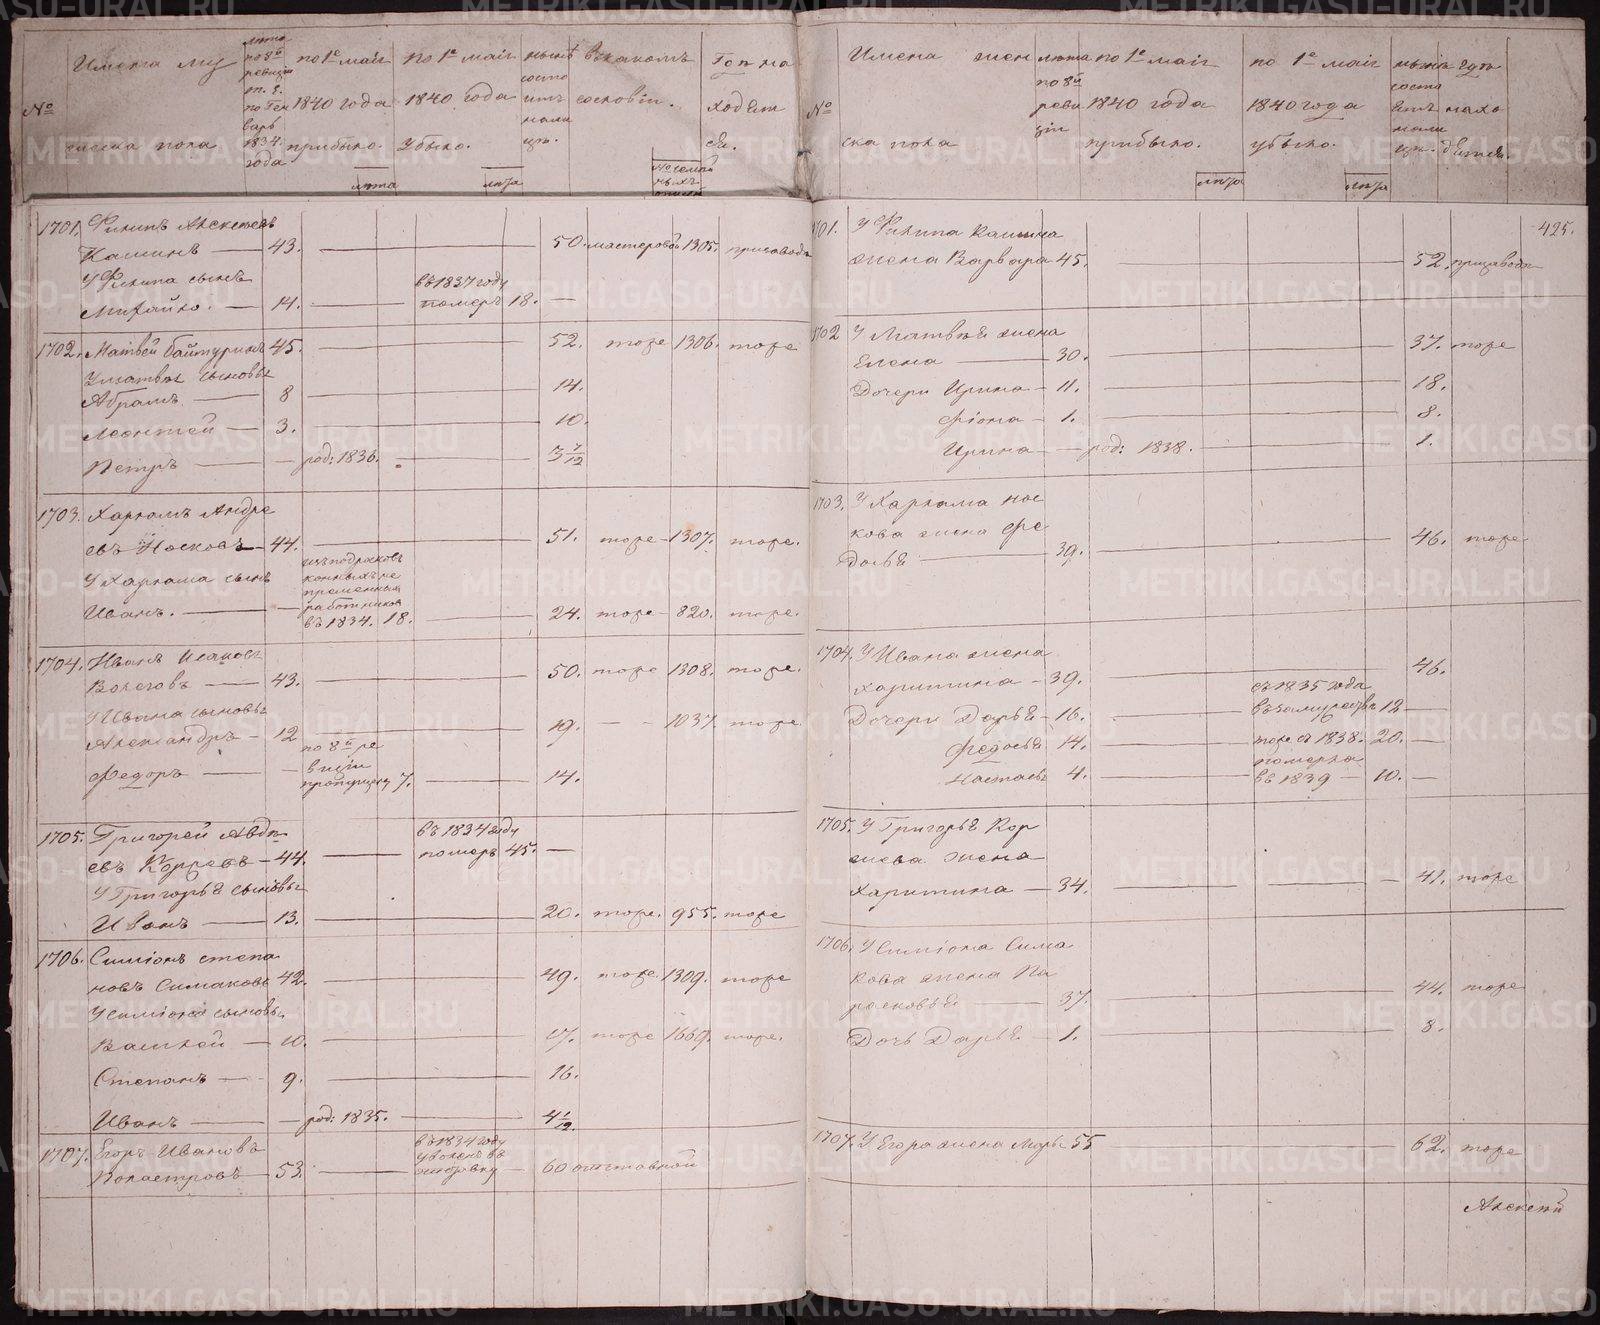 №
Имена му
жеска пола
лѣта
по 8й
ревизіи
т. е.
по Ген
варь
1834.
года
по 1е маія
1840 года
прибыло.
лѣта
по 1е маія
1840 года
убыло.
лѣта
нынѣ
состо
итъ
нали
цо.
въ какомъ
сословіи.
№ имен
ныхъ
Гдѣ на
ходят
ся.
1701. Филипъ Алексѣевъ
Калининъ — 43. — 50. мастеровой 1305. при заводѣ
У Филипа сынъ въ 1837 году
Михайло. — 14. — померъ 18. —
1702. Матвей Байтуринъ 45. 52. тоже 1306. тоже
У Матвѣя сыновья
Абрамъ — 8 — 14.
Леонтей — 3. — 10.
Петръ — род: 1836. — 3 7/12
1703. Харламъ Андре
евъ Носковъ — 44. — 51. тоже 1307. тоже.
У Харлама сынъ
Иванъ. — изъ подростковъ
конныхъ не
пременныхъ
работниковъ
въ 1834. 18. — 24. тоже — 820. тоже.
1704. Иванъ Исаковъ
Волеговъ — 43. — 50. тоже 1308. тоже.
У Ивана сыновья
Александръ — 12 — 19. — — 1037. тоже
Федоръ — по 8й ре
визіи
пропущенъ 7. — 14.
1705. Григорей Авдѣ
евъ — 44. — въ 1834 году
померъ 45. —
У Григорья сыновья
Иванъ — 13. — 20. тоже. 955. тоже
1706. Симіонъ степа
новъ Симаковъ 42. — 49. тоже. 1309. тоже
У Симіона сыновья
— 10. — 17. тоже 1669. тоже.
Степанъ — 9. — 16.
Иванъ — род: 1835. — 4 1/12
1707. Егоръ Ивановъ въ 1834 году
— 53. — уволенъ въ
отставку — 60 отставной
№
Имена жен
ска пола
лѣта
по 8й
реви
зіи
по 1е маія
1840 года
прибыло.
лѣта
по 1е маія
1840 года
убыло.
лѣта
нынѣ
состо
итъ
нали
цо.
гдѣ
нахо
дятся.
425.
1701. У Филипа Калинина
жена Варвара 45. — 52. при заводѣ
1702 У Матвѣя жена
Елена — 30. — 37. тоже
Дочери Ирина — 11. — 18.
Фіона — 1. — 8.
Ирина — род: 1838. — 1.
1703. У Харлама Нос
кова жена Фе
досья — 39. — 46. тоже
1704. У Ивана жена
Харитина — 39. — 46.
Дочери Дарья — 16. — съ 1835 года
въ замужствѣ 12 —
Федосья 14. — тоже съ 1838. 20. —
Настасья 4. — померла
въ 1839 — 10. —
1705. У Григорья Кор
жена
Харитина — 34. — 41. тоже
1706. У Симіона Сима
кова жена Па
расковья — 37. — 44. тоже
Дочь Дарья — 1. — 8.
1707. У Егора жена Марья 55 — 62. тоже
Алексѣй
METRIKI.GASO-URAL.RU